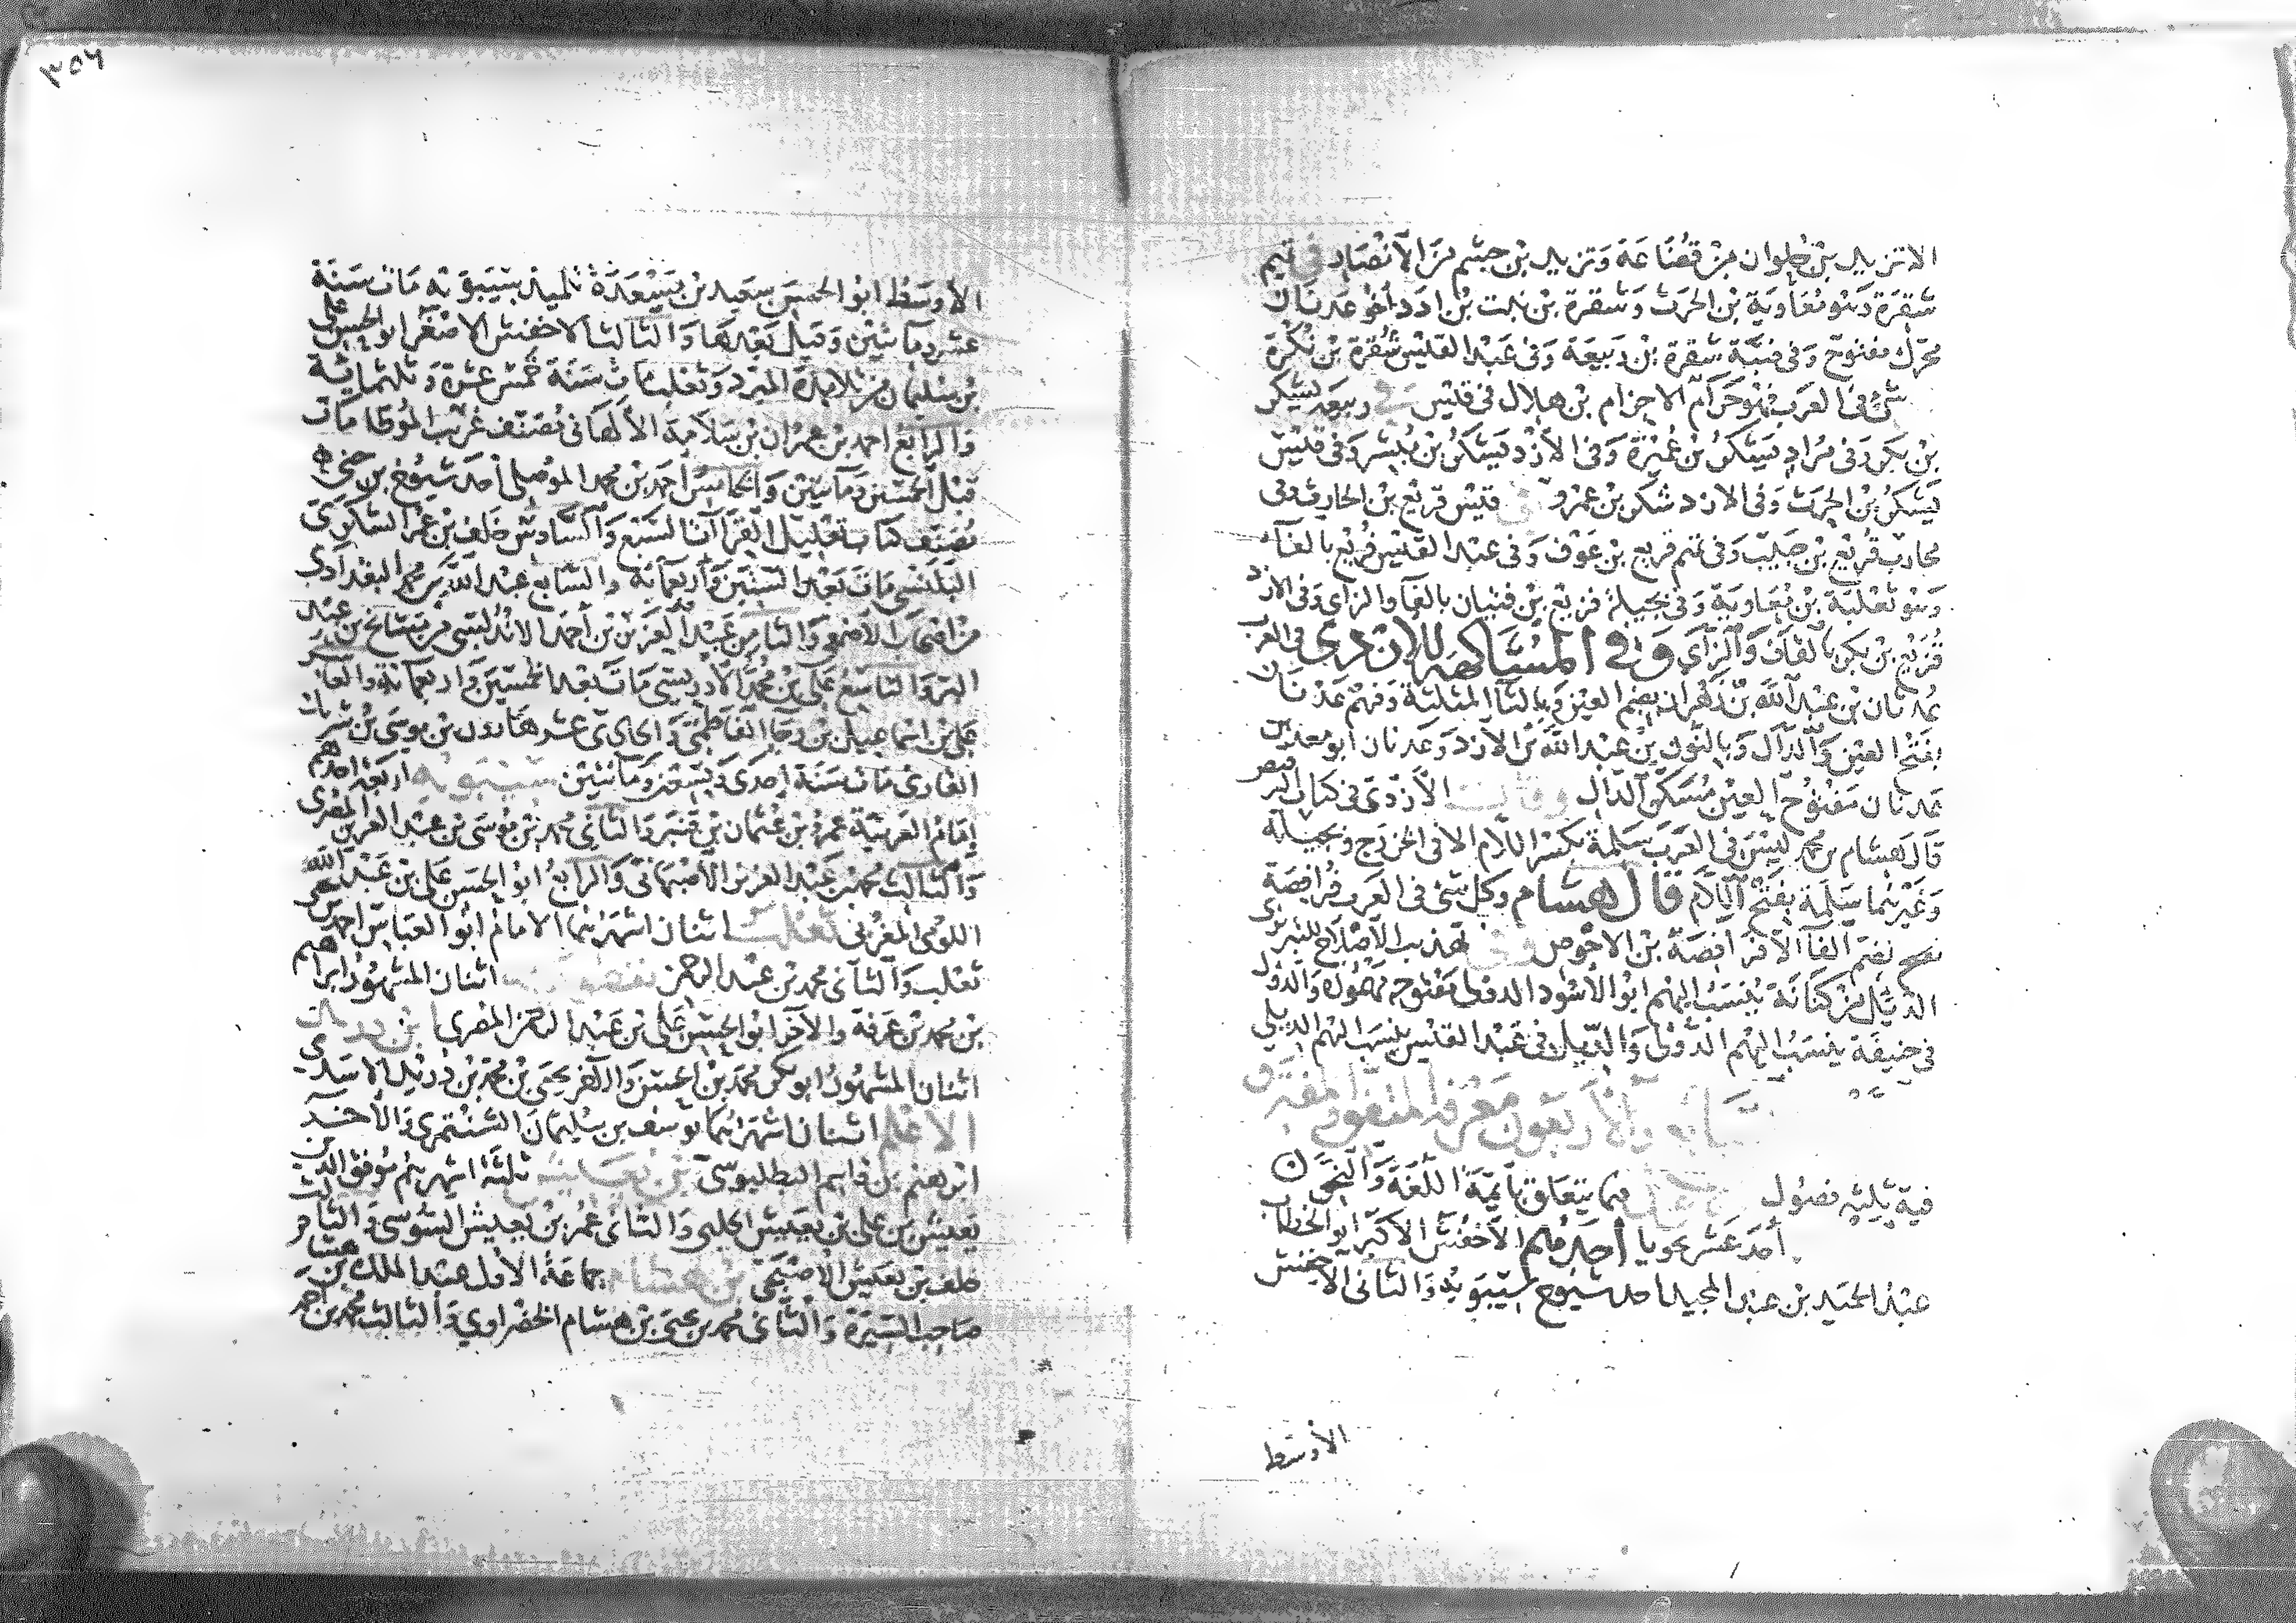 الا تزيد بن حلوان من قضاعة وتزيد بن جشم من الانصار في تميم
شقرة وبنو معاوية بن الحرث وشقرة بن نبت بن ادد اخو عدنان
محرك مفتوح وفي ضبة شقرة بن ربيعة وفي عبد القيس شقرة بن نكرة
شئ في العرب فهو حرام الا حزام بن هلال في قيس في ربيعة يشكر
بن بكر وفي مراد يشكر بن عميرة وفي الأزد يشكر بن مبشر وفي قيس
يشكر بن الحرث وفي الازد شكر بن عمرو في قيس قريع بن الحارث وفي
محارب قريع بن حبيب وفي تميم قريع بن عوف وفي عبد القيس فريع بالفاء
وبنو ثعلبة بن معاوية وفي بجيلة فزيع بن فتيان بالفا والزاي وفي الازد
قزيع بن بكر بالقاف والزاي وفي المشاكهة للازدي في العرب
عدثان بن عبد الله بن زهران بضم العين وبالثا المثلثة وفيهم عدنان
بفتح العين والدال وبالنون بن عبد الله من الأزد وعدنان ابو معد بن
عدنان مفتوح العين مسكن الدال وقال الأزدي في كتاب الترقيص
قال هشام بن محمد ليس في العرب سلمة بكسر اللام الا في الخزرج وبجيلة
وغيرهما سلمة بفتح اللام قال هشام وكل شئ في العرب فرافصة
بضم الفا الا فرافصة بن الاحوص وفي تهذيب الاصلاح للتبريزي
الدئل من كنانة ينسب اليهم ابو الأسود الدؤلي مفتوحة مهموزة والدول
في حنيفة ينسب اليهم الدؤلي والديل في عبد القيس ينسب اليهم الديلي
والاربعون معرفة المتفق والمفترق
فيه ثلثة فصول فيما يتعلق بائمة اللغة والنحو
أحد عشر نحويا أحدهم الأخفش الأكبر ابو الخطاب
عبد الحميد بن عبد المجيد احد شيوخ سيبويه والثاني الاخفش
الأوسط
٣٥٦
الأوسط ابو الحسن سعيد بن مسعدة تلميذ سيبويه مات سنة
عشر ومائتين وقيل بعدها والثالث الاخفش الاصغر ابو الحسن علي
بن سليمان من تلامذة المبرد وثعلب مات سنة خمس عشرة وثلثمائة
والرابع احمد بن عمران بن سلامة الألهاني مصنف غريب الموطا مات
قبل الخمسين ومائتين والخامس احمد بن محمد الموصلي أحد شيوخ بن جني
مصنف كتاب تعليل القراات السبع والسادس خلف بن عمر الشكري
البلنسي مات بعد الستين وأربعمائة والسابع عبد الله بن محمد البغدادي
من اصحاب الاصمعي والثامن عبد العزيز بن أحمد الاندلسي من مشايخ بن عبد
البر والتاسع علي بن محمد الادريسي مات بعد الخمسين واربعمائة والعاشر
علي بن اسماعيل بن رجا الفاطمي والحادي عشر هارون بن موسى بن شريك
القاري مات سنة إحدى وسبعين ومائتين سيبويه اربعة احدهم
إمام العربية عمرو بن عثمان بن قنبر والثاني محمد بن موسى بن عبد العزيز المصري
والثالث محمد بن عبد العزيز الأصبهاني والرابع ابو الحسن علي بن عبد الله
اللومي المغربي ثعلب اثنان اشهرهما الامام ابو العباس احمد بن يحيى
ثعلب والثاني محمد بن عبد الرحمن نفطويه اثنان المشهور ابراهيم
بن محمد بن عرفة والآخر ابو الحسن علي بن عبد الرحمن المصري بن دريد
اثنان المشهور ابو بكر محمد بن الحسن والاخر يحيى بن محمد بن دريد الاسدي
الاعلم اثنان اشهرهما يوسف بن سليمان الشنتمري والأخر
ابراهيم بن قاسم البطليوسي بن يعيش ثلثة اشهرهم موفق الدين
يعيش بن علي بن يعيش الحلبي والثاني عمر بن يعيش السوسي والثالث
خلف بن يعيش الأصبحي بن هشام جماعة الأول عبد الملك بن هشام
صاحب السيرة والثاني محمد بن يحيى بن هشام الخضراوي والثالث محمد بن احمد